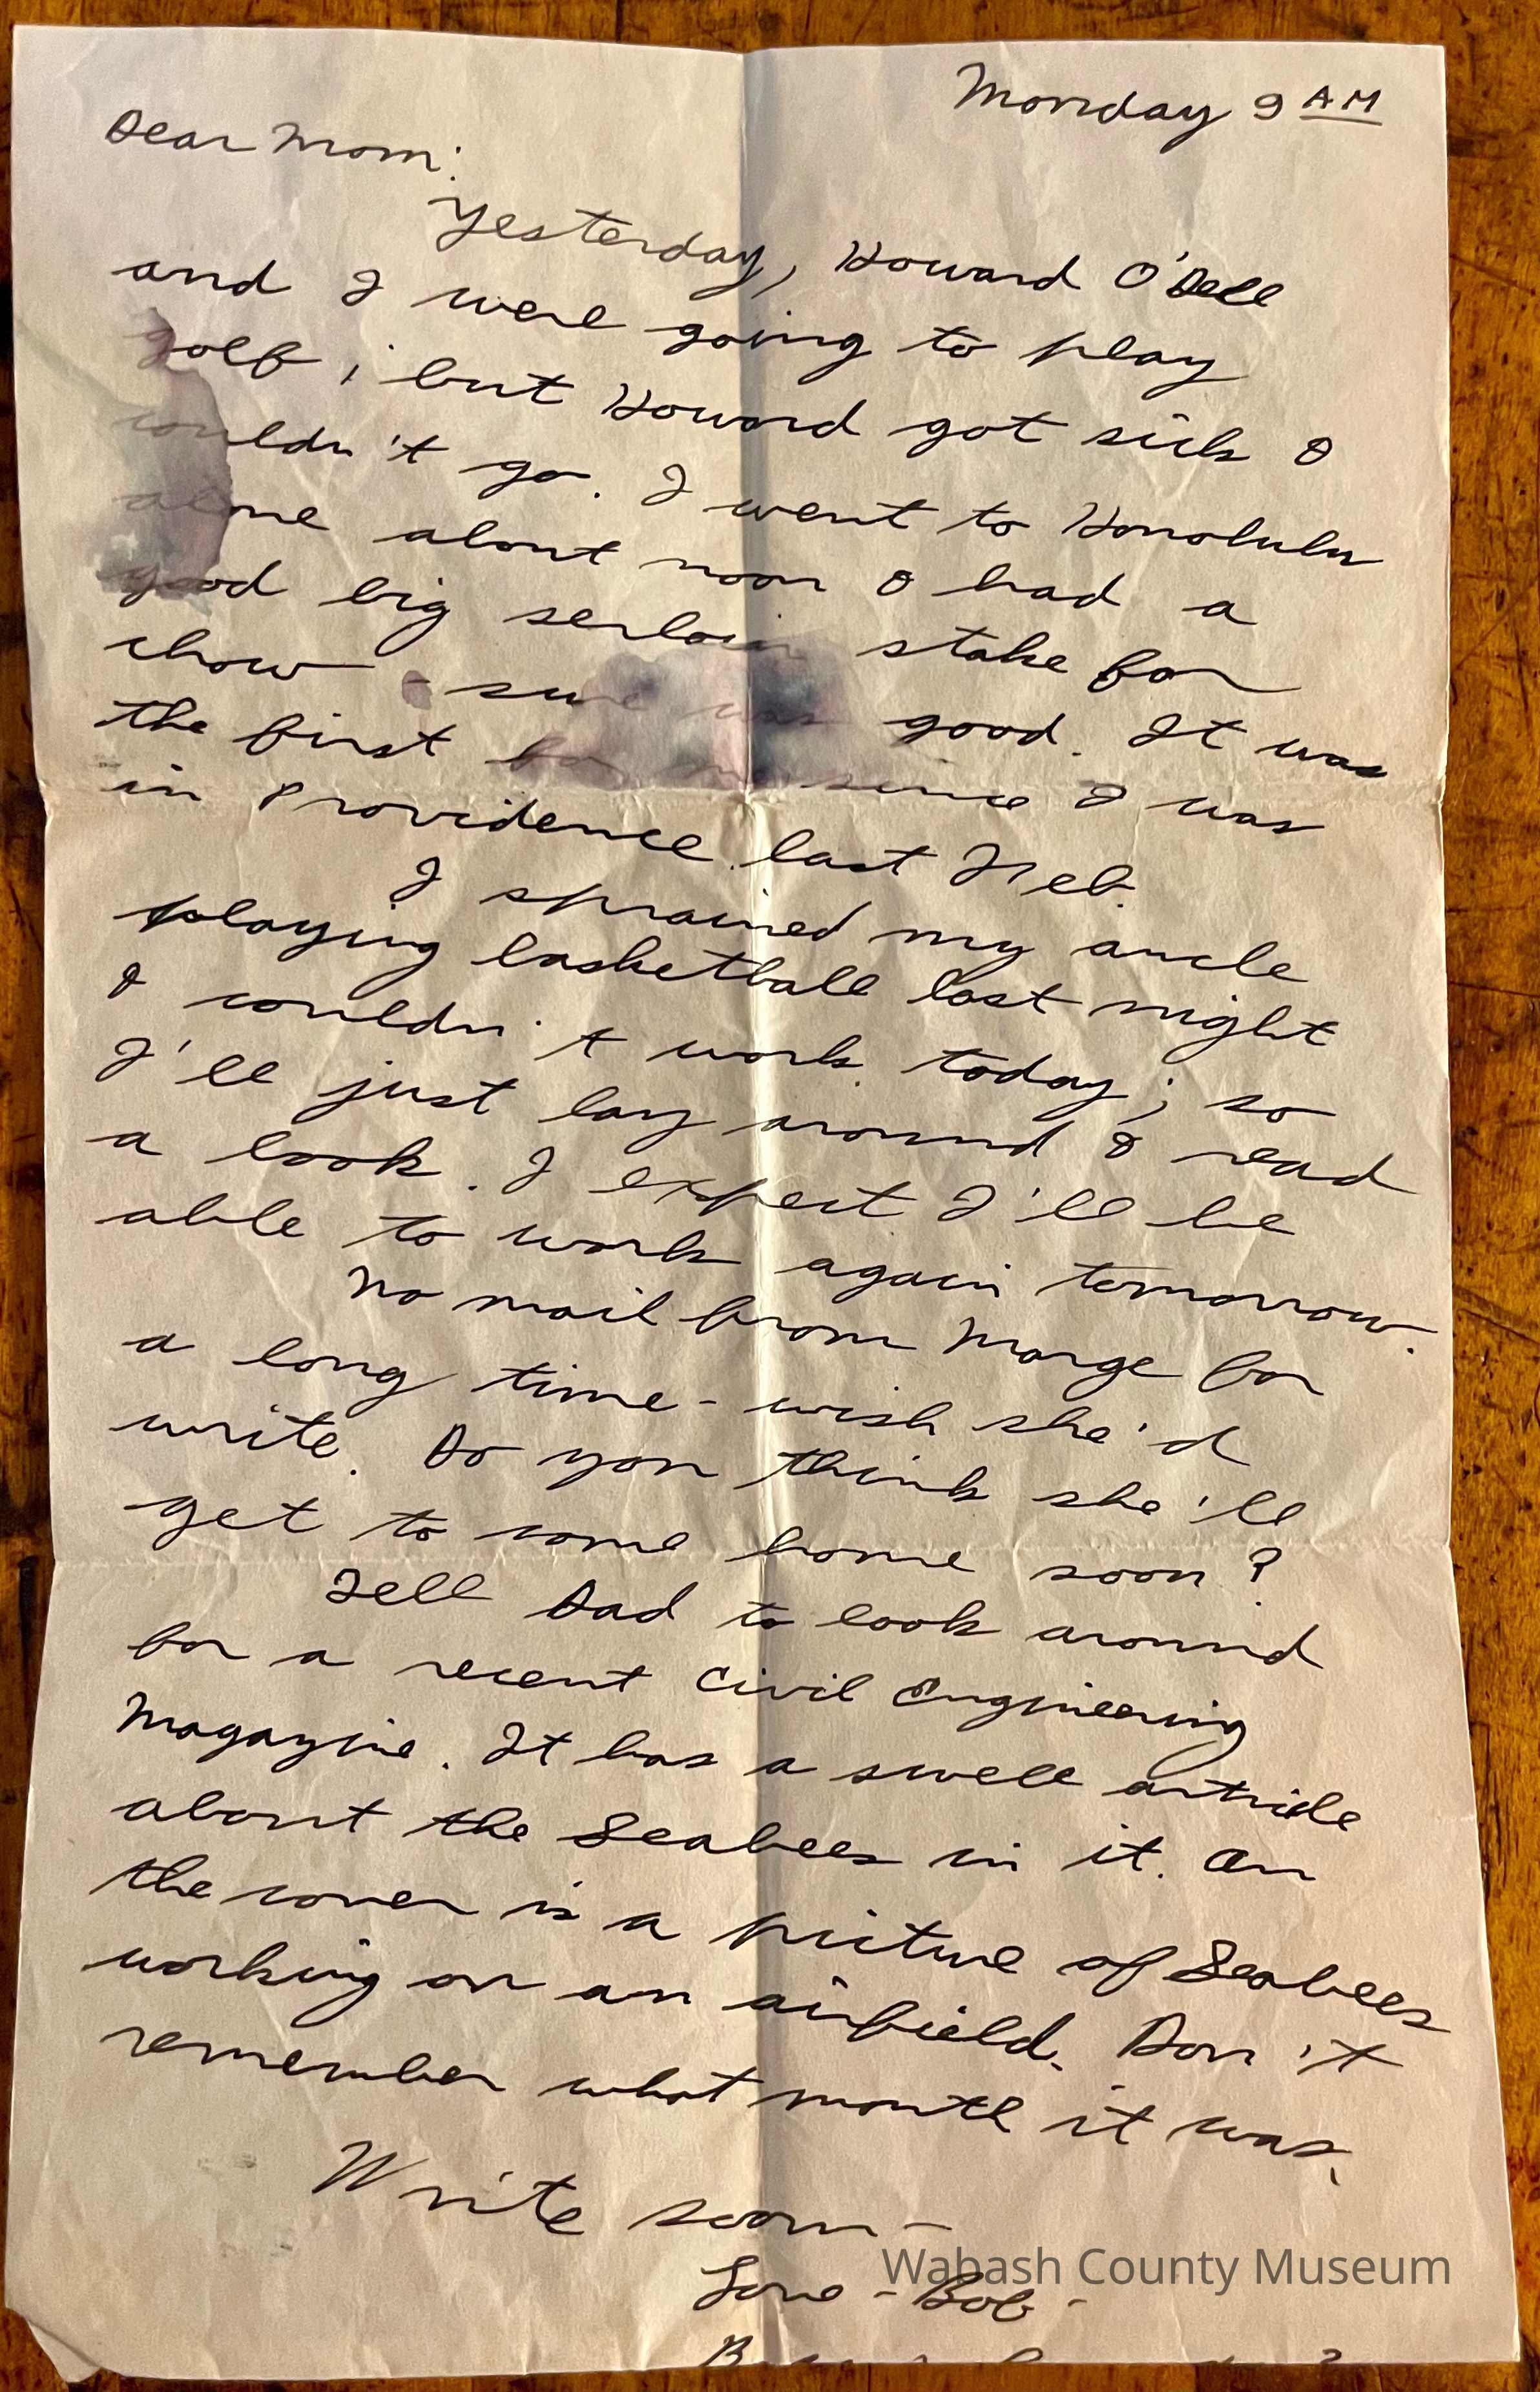 Monday 9 AM
Dear Mom:
Yesterday, Howard O'Dell
and I were going to play
golf; but Howard got sick &
couldn't go. I went to Honolulu
alone about noon & had a
good big serloin stake for
chow - sure was good. It was
the first since I was
in Providence last Feb.
I sprained my ancle
playing basketball last night
& couldn't work today; so
I'll just lay around & read
a book. I expect I'll be
able to work again tomorrow.
No mail from Marge for
a long time - wish she'd
write. Do you think she'll
get to come home soon?
Tell Dad to look around
for a recent Civil Engineering
Magazine. It has a swell articile
about the Seabees in it. On
the cover is a picture of Seabees
working on an airfield. Don't
remember what month it was.
Write soon -
Love - Bob -
Wabash County Museum